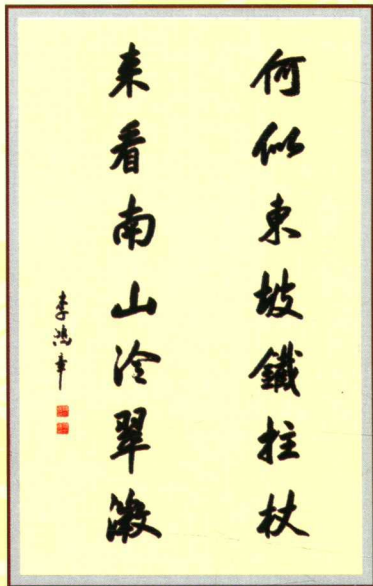 何似東坡鐵拄杖
来看南山冷翠微
李鴻章